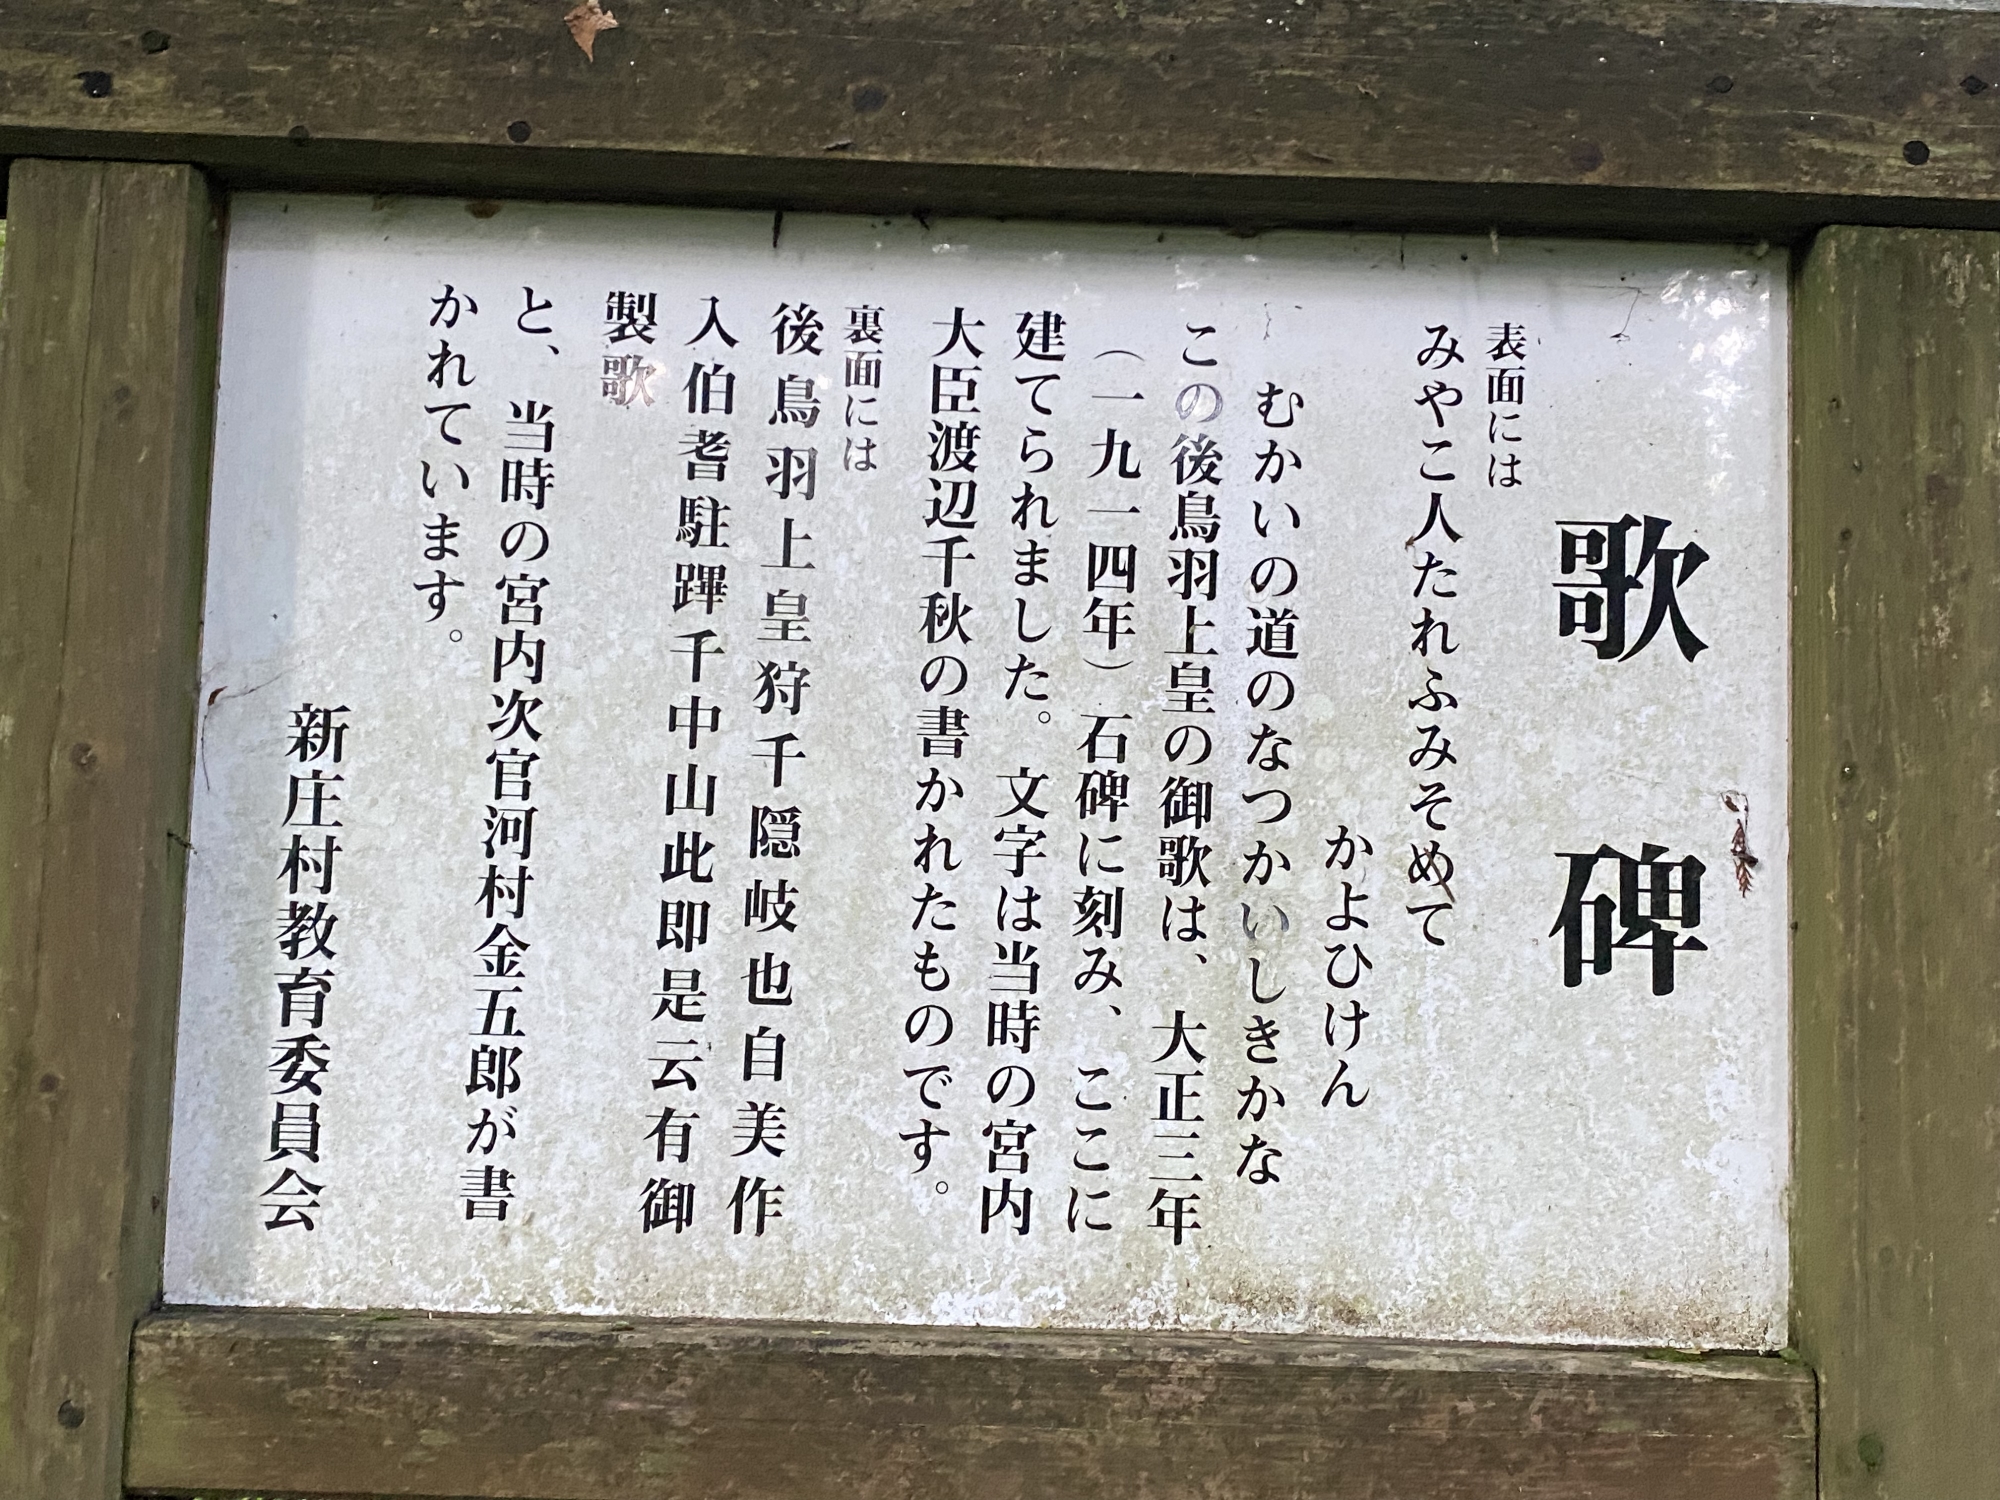 歌碑
表面には
みやこ人たれふみそめて
かよひけん
むかいの道のなつかいしきかな
この後鳥羽上皇の御歌は、大正三年
（一九一四年）石碑に刻み、ここに
建てられました。文字は当時の宮内
大臣渡辺千秋の書かれたものです。
裏面には
後鳥羽上皇狩千隠岐也自美作
入伯耆駐蹕千中山此即是云有御
製歌
と、当時の宮内次官河村金五郎が書
かれています。
新庄村教育委員会